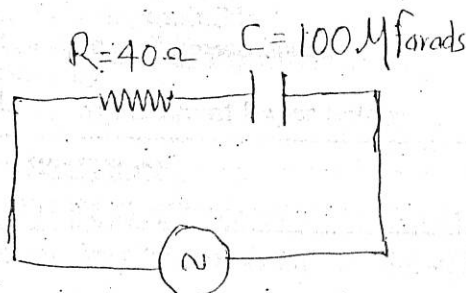 R=40Ω C=100 Mfarads
~